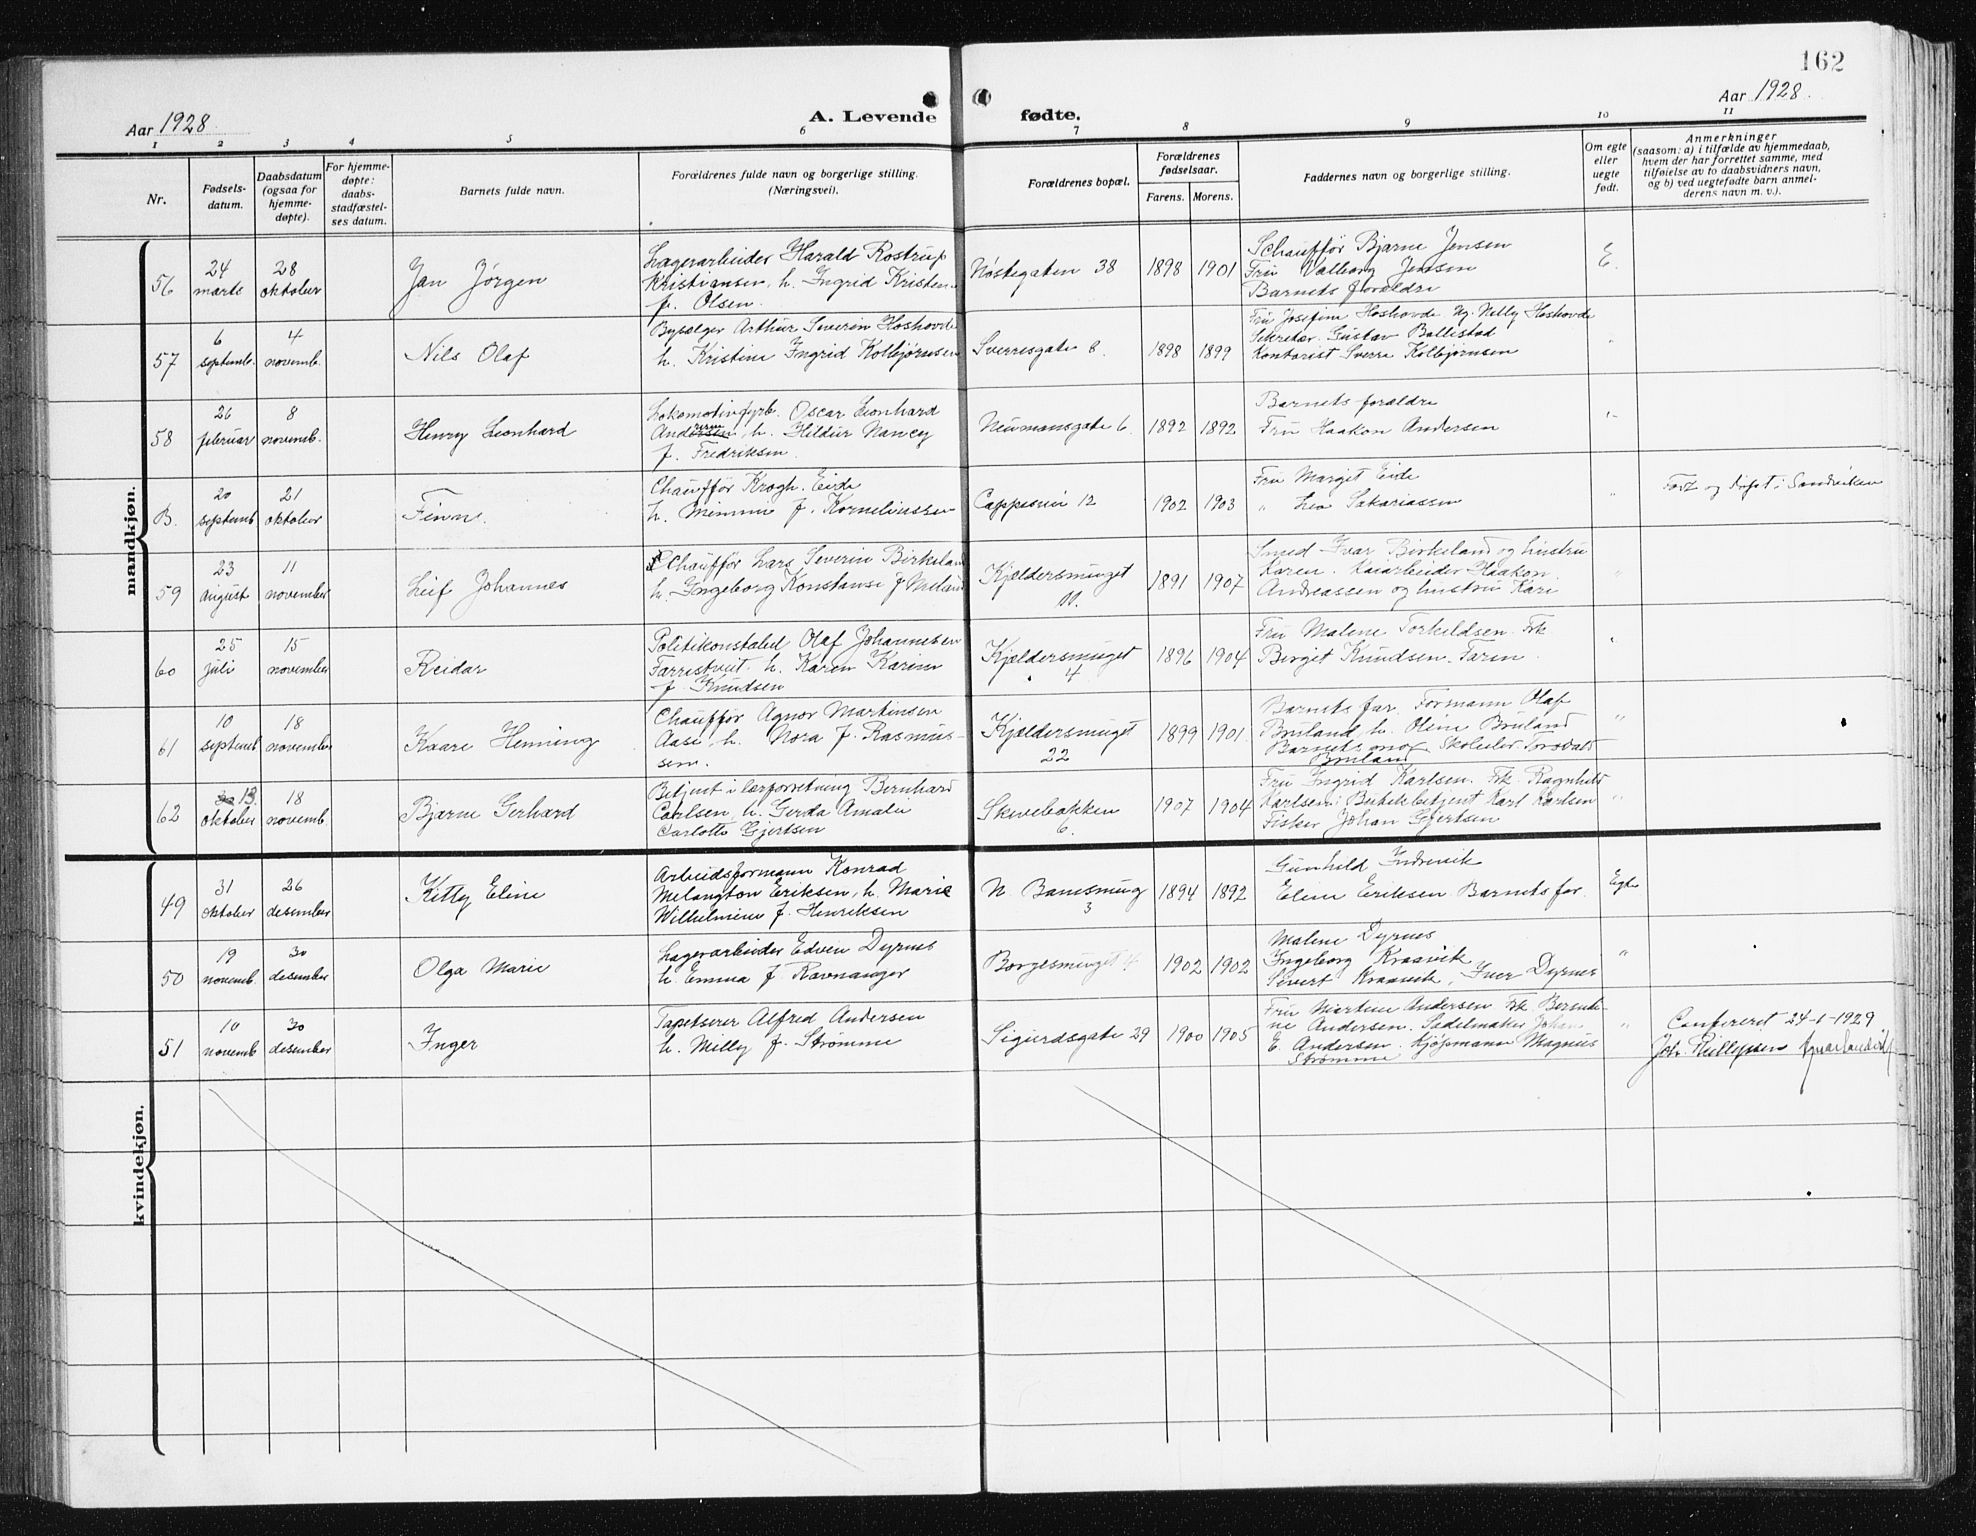 162
Aar 1928
A. Levende fødte.
Aar 1928.
1 2 3 4 5 6 7 8 9 10 11
Nr.
Fødsels-
datum.
Daabsdatum
(ogsaa for
hjemme-
døpte).
For hjemme-
døpte:
daabs-
stadfæstel-
ses datum.
Barnets fulde navn.
Forældrenes fulde navn og borgerlige stilling.
(Næringsvei).
Forældrenes bopæl.
Forældrenes
fødselsaar.
Farens. Morens.
Faddernes navn og borgerlige stilling.
Om egte
eller
uegte
født.
Anmerkninger
(saasom: a) i tilfælde av hjemmedaab,
hvem der har forrettet samme, med
tilføielse av to daabsvidners navn,
og b) ved uegtefødte barn anmel-
derens navn m. v.).
mandkjøn.
56
24
marts
28
oktober
Jan Jørgen
Lagerarbeider Harald Rostrup
Kristiansen, h. Ingrid Kristen
f. Olsen.
Nøstegaten 38
1898 1901
Schauffør Bjarne Jensen
Fru Valborg Jensen
Barnets forældre
E.
57
6
septemb.
4
novemb.
Nils Olaf
Bypælger Arthur Severin Hoshovde
h. Kristine Ingrid Kolbjørnsen
Sverresgate 8.
1898 1899
Fru Josefine Hoshovde. Ug. Nelly Hoshovde
Sekretær Gustav Ballestad
Kontorist Sverre Kolbjørnsen
"
58
26
februar
8
novemb.
Henry Leonhard
Lokomotivfyrb. Oscar Leonhard
Andersen, h. Hildur Nancy
f. Fredriksen.
Neumansgate 6.
1892 1892
Barnets forældre
Fru Haakon Andersen
"
B.
20
septemb
21
oktober
Finn.
Chauffør Krogh. Eide
h. Memmie f. Korneliussen
Cappesvei 12
1902 1903
Fru Margit Eide
" Lea Sakariassen
"
Født og døpt i Sandviken
59
23
august
11
november
Leif Johannes
Chauffør Lars Severin Birkeland
h. Ingeborg Konstanse f.
Kjeldersmuget
11.
1891 1907
Smed Ivar Birkeland og hustru
Karen. Kaiarbeider Haakon
Andreassen og hustru Kari
"
60
25
juli
15
november
Reidar
Politikonstabel Olaf Johannesen
Farrestveit h. Karen Karine
f. Knudsen
Kjeldersmuget
4
1896 1904
Fru Malene Torkildsen. Frk
Birgit Knudsen. Faren.
"
61
10
septemb
18
november
Kaare Henning
Chauffør Agnor Martinsen
Aase, h. Nora f. Rasmus-
sen.
Kjeldersmuget
22
1899 1901.
Barnets far. Formann Olaf
Bruland h. Oline Bruland
Barnets mor Skoleelev Torsdal
Bruland
"
62
30 13.
oktober
18
novemb.
Bjarne Gerhard
Betjent i lærforretning Bernhard
Carlsen, h. Gerda Amalie
Carlotte Gjertsen
Skivebakken
6.
1907 1904
Fru Ingrid Karlsen. Frk. Ragnhild
Karlsen. Butikkbetjent Karl Karlsen
Fisker Johan Gjertsen
"
kvindekjøn.
49
31
oktober
26
desember
Kitty Eline
Arbeidsformann Konrad
Melangton Eriksen, h. Marie
Wilhelmine f. Henriksen
N. Banesmug
3
1894 1892
Gunhild Indrevik
Eline Eriksen. Barnets far.
Egte
50
19
novemb.
30
desember
Olga Marie
Lagerarbeider Edvin Dyrnes
h. Emma f. Ravnanger
Borgesmuget 4
1902 1902
Malene Dyrnes
Ingeborg Kraavik
Sivert Kraavik, Iver Dyrnes
"
51
10
novemb
30
desember
Inger
Tapetserer Alfred Andersen
h. Milly f. Strømme
Sigurdsgate 29
1900 1905
Fru Martine Andersen Frk Berenti-
ne Andersen. Sadelmaker Johan
E. Andersen. Kjøpmann Magnus
Strømme
"
Confereret 24-1-1929
Joh. Phillipsen